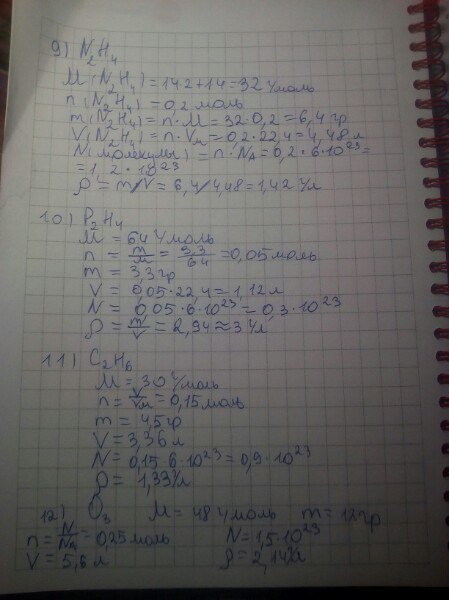 9) N₂H₄
M(N₂H₄)=14·2+1·4=32 г/моль
n(N₂H₄)=0,2 моль
m(N₂H₄)=n·M=32·0,2=6,4 гр
V(N₂H₄)=n·Vм=0,2·22,4=4,48 л
N(молекулы)=n·Nₐ=0,2·6·10²³=
=1,2·10²³
ρ=m/V=6,4/4,48=1,42 г/л
10) P₂H₄
M=64 г/моль
n=m/M=3,3/64=0,05 моль
m=3,3 гр
V=0,05·22,4=1,12 л
N=0,05·6·10²³=0,3·10²³
ρ=m/V=2,94≈3 г/л
11) C₂H₆
M=30 г/моль
n=V/Vм=0,15 моль
m=4,5 гр
V=3,36 л
N=0,15·6·10²³=0,9·10²³
ρ=1,33 г/л
12) O₃ M=48 г/моль m=12 гр
n=N/Nₐ=0,25 моль N=1,5·10²³
V=5,6 л ρ=2,14 г/л